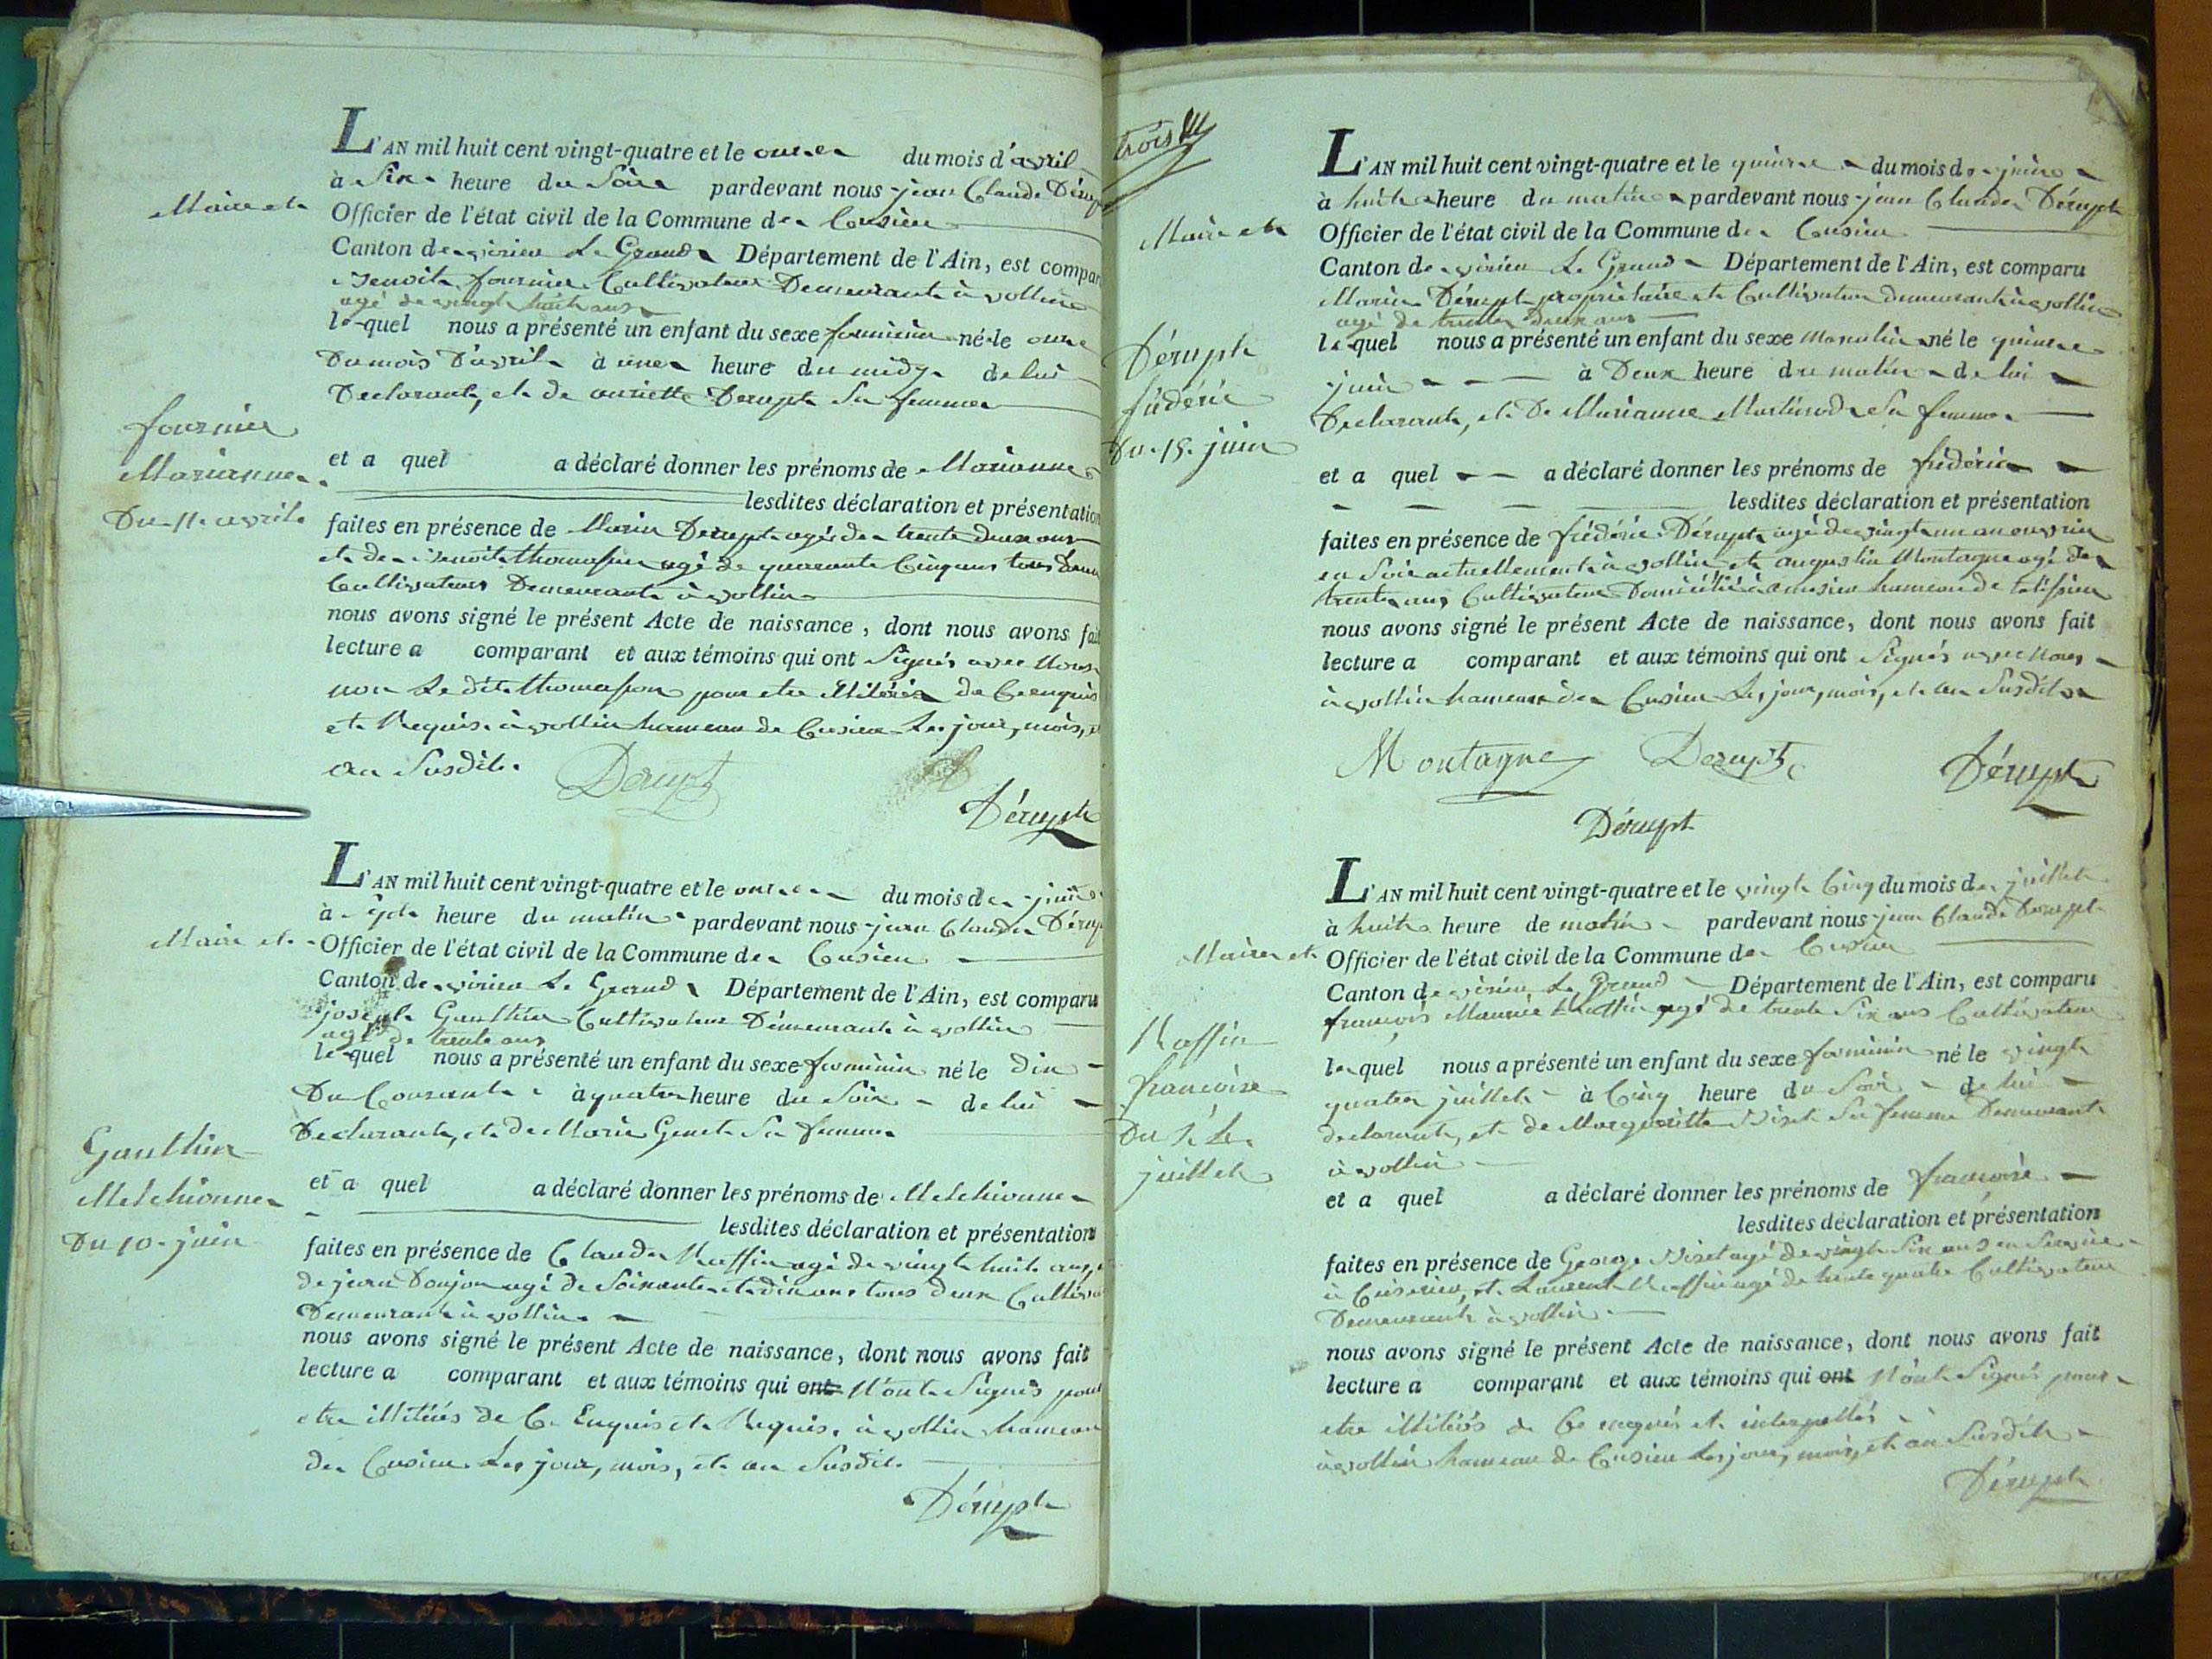 L'AN mil huit cent vingt-quatre et le onze du mois d'avril
à Six heure du Soir pardevant nous jean Claude Dérup
Maire et
Officier de l'état civil de la Commune de Cusieu
Canton de virieu Le Grand Département de l'Ain, est compar
Benoit fournier Cultivateur Demeurant à vollien
agé de vingt huit ans
le quel nous a présenté un enfant du sexe feminin né le onze
Du mois D'avril à une heure du midy de lui
Declarant, et de anriette Derupt Sa femme
fournier
Marianne
Du 11 avril
et a quel a déclaré donner les prénoms de Marianne
lesdites déclaration et présentation
faites en présence de Marin Derupt agé de trente deux ans
et de Benoit thomasson agé de quarante Cinq ans tous deux
Cultivateurs Demeurant à vollien
nous avons signé le présent Acte de naissance, dont nous avons fait
lecture a comparant et aux témoins qui ont Signés avec Nous
non Le dit thomasson pour etre illitéré de Ce enquis
et Requis. à vollien hameau de Cusieu Les jour, mois, et
an Susdit.
Derupt
Dérupt
L'AN mil huit cent vingt-quatre et le onze du mois de juin
à Sept heure du matin pardevant nous jean Claude Dérup
Maire et
Officier de l'état civil de la Commune de Cusieu
Canton de virieu Le Grand Département de l'Ain, est comparu
joseph Gauthier Cultivateur Demeurant à vollien
agé de trente ans
le quel nous a présenté un enfant du sexe feminin né le dix
Du Courant à quatre heure du Soir de lui
Declarant, et de Marie Genet Sa femme
Gauthier
Melchionne
Du 10 juin
et a quel a déclaré donner les prénoms de Melchionne
lesdites déclaration et présentation
faites en présence de Claude Raffin agé de vingt huit ans, e
de jean Doujon agé de Soixante et dix ans tous deux Cultiva
Demeurant à vollien
nous avons signé le présent Acte de naissance, dont nous avons fait
lecture a comparant et aux témoins qui ont N'ont Signés pour
etre illitérés de Ce Enquis et Requis. à vollien hameau
de Cusieu Les jour, mois, et an Susdit.
Dérupt
trois
L'AN mil huit cent vingt-quatre et le quinze du mois de juin
à huit heure du matin pardevant nous jean Claude Dérupt
Maire et
Officier de l'état civil de la Commune de Cusieu
Canton de virieu Le Grand Département de l'Ain, est comparu
Marin Dérupt propriétaire et Cultivateur demeurant à vollien
agé de trente Deux ans
le quel nous a présenté un enfant du sexe Masculin né le quinze
juin à Deux heure du matin de lui
Declarant, et De Marianne Martinod Sa femme
Dérupt
frédéric
Du 15 juin
et a quel a déclaré donner les prénoms de frédéric
lesdites déclaration et présentation
faites en présence de frédéric Dérupt agé de vingt un an ouvrier
en Soie actuellement à vollien et augustin Montagne agé de
trente ans Cultivateur Domicilié à amesieu hameau de talissieu
nous avons signé le présent Acte de naissance, dont nous avons fait
lecture a comparant et aux témoins qui ont Signés avec Nous
à vollien hameau de Cusieu Les jour, mois, et an Susdit
Montagne Derupt Dérupt
Dérupt
L'AN mil huit cent vingt-quatre et le vingt Cinq du mois de juillet
à huit heure de matin pardevant nous jean Claude Derupt
Maire et
Officier de l'état civil de la Commune de Cusieu
Canton de virieu Le Grand Département de l'Ain, est comparu
françois Maurice Raffin agé de trente Six ans Cultivateur
le quel nous a présenté un enfant du sexe feminin né le vingt
quatre juillet à Cinq heure du Soir de lui
declarant, et de Margueritte Biset Sa femme Demeurant
à vollien
Raffin
francoise
Du 24
juillet
et a quel a déclaré donner les prénoms de francoise
lesdites déclaration et présentation
faites en présence de George Biset agé de vingt Six ans en Service
à et Laurent Raffin agé de trente quatre Cultivateur
Demeurant à vollien
nous avons signé le présent Acte de naissance, dont nous avons fait
lecture a comparant et aux témoins qui ont N'ont Signés pour
etre illitérés de Ce enquis et interpellés
à vollien hameau de Cusieu Les jour, mois, et an Susdit
Dérupt